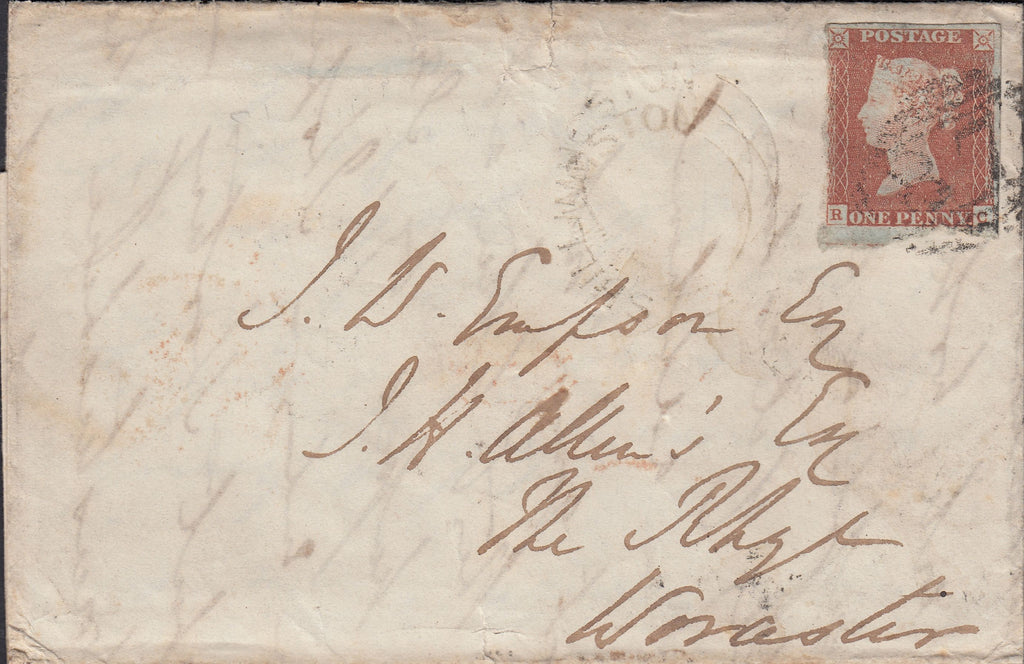 POSTAGE
R ONE PENNY C
J. W. Empson Esq
J. H. Allen's Esq
The Rhyd
Worcester